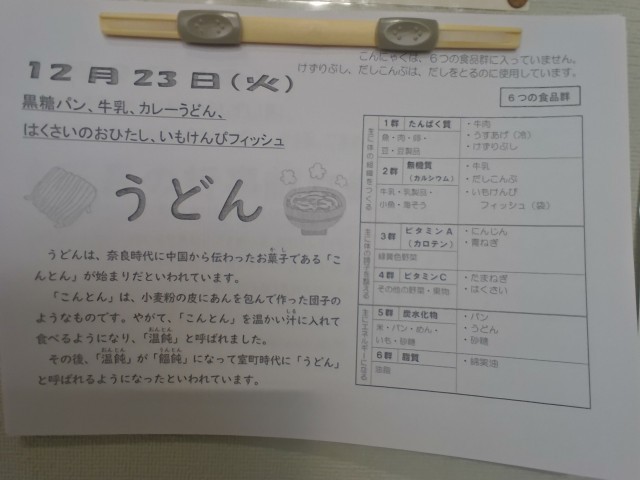 こんにゃくは、6つの食品群に入っていません。
けずりぶし、だしこんぶは、だしをとるのに使用しています。
12月23日(火)
黒糖パン、牛乳、カレーうどん、
はくさいのおひたし、いもけんぴフィッシュ
うどん
うどんは、奈良時代に中国から伝わったお菓子である「こ
んとん」が始まりだといわれています。
「こんとん」は、小麦粉の皮にあんを包んで作った団子の
ようなものです。やがて、「こんとん」を温かい汁に入れて
食べるようになり、「温飩」と呼ばれました。
その後、「温飩」が「饂飩」になって室町時代に「うどん」
と呼ばれるようになったといわれています。
6つの食品群
主に体の組織をつくる
1群 たんぱく質
魚・肉・卵・
豆・豆製品
・牛肉
・うすあげ(冷)
・けずりぶし
2群 無機質
(カルシウム)
牛乳・乳製品・
小魚・海そう
・牛乳
・だしこんぶ
・いもけんぴ
フィッシュ(袋)
主に体の調子を整える
3群 ビタミンA
(カロテン)
緑黄色野菜
・にんじん
・青ねぎ
4群 ビタミンC
その他の野菜・果物
・たまねぎ
・はくさい
主にエネルギーになる
5群 炭水化物
米・パン・めん・
いも・砂糖
・パン
・うどん
・砂糖
6群 脂質
油脂
・綿実油